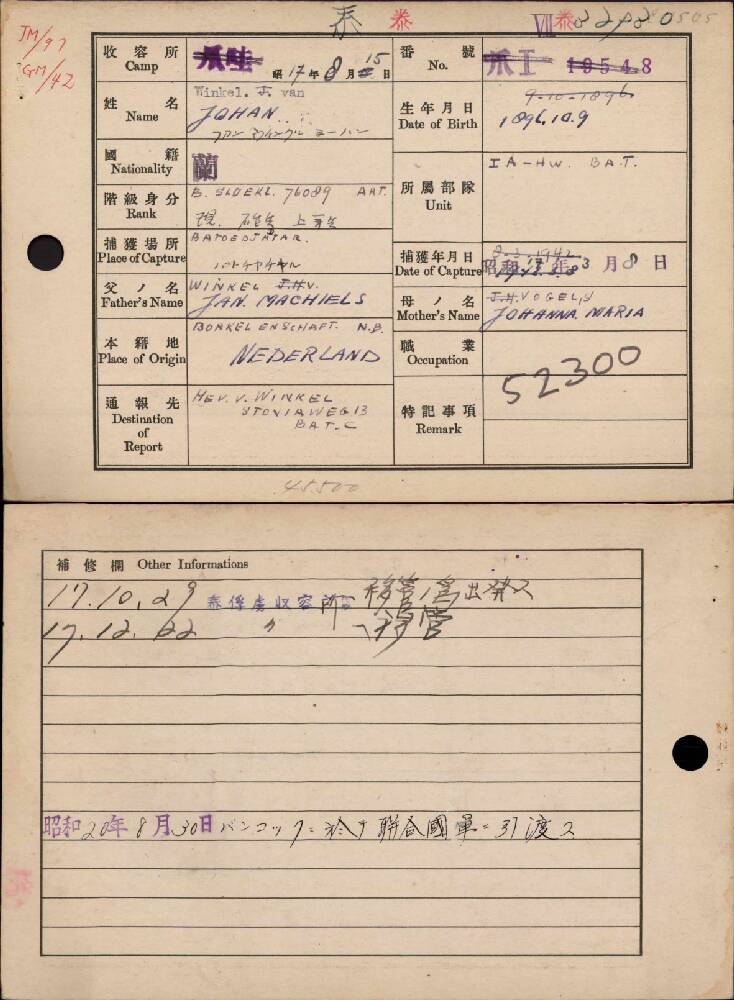 泰 泰 VII 泰
JM/97
GM/42
收容所 Camp 爪哇 昭17年8月15日
番號 No. 爪I 19548
姓名 Name Winkel. J. van
JOHAN
フアン ウインケル ヨーハン
生年月日 Date of Birth 9-10-1896
1896.10.9
國籍 Nationality 蘭
所屬部隊 Unit IA-HW. BAT.
階級身分 Rank 76089 ART.
捕獲場所 Place of Capture BATOEDJAJAR.
捕獲年月日 Date of Capture 8-3-1942
昭和17年3月8日
父ノ名 Father's Name WINKEL J.H.V.
JAN. MACHIELS
母ノ名 Mother's Name J.H. VOGEL,
JOHANNA MARIA
本籍地 Place of Origin N.B.
NEDERLAND
職業 Occupation
52300
通報先 Destination of Report MEV. V. WINKEL
STOVIAWEG 13
BAT. C
特記事項 Remark
45500
補修欄 Other Informations
17.10.29 泰俘虜収容所ニ移管ノ為出発ス
17.12.22 〃 ヘ移管
昭和20年8月30日バンコックニ於テ聯合國軍ニ引渡ス